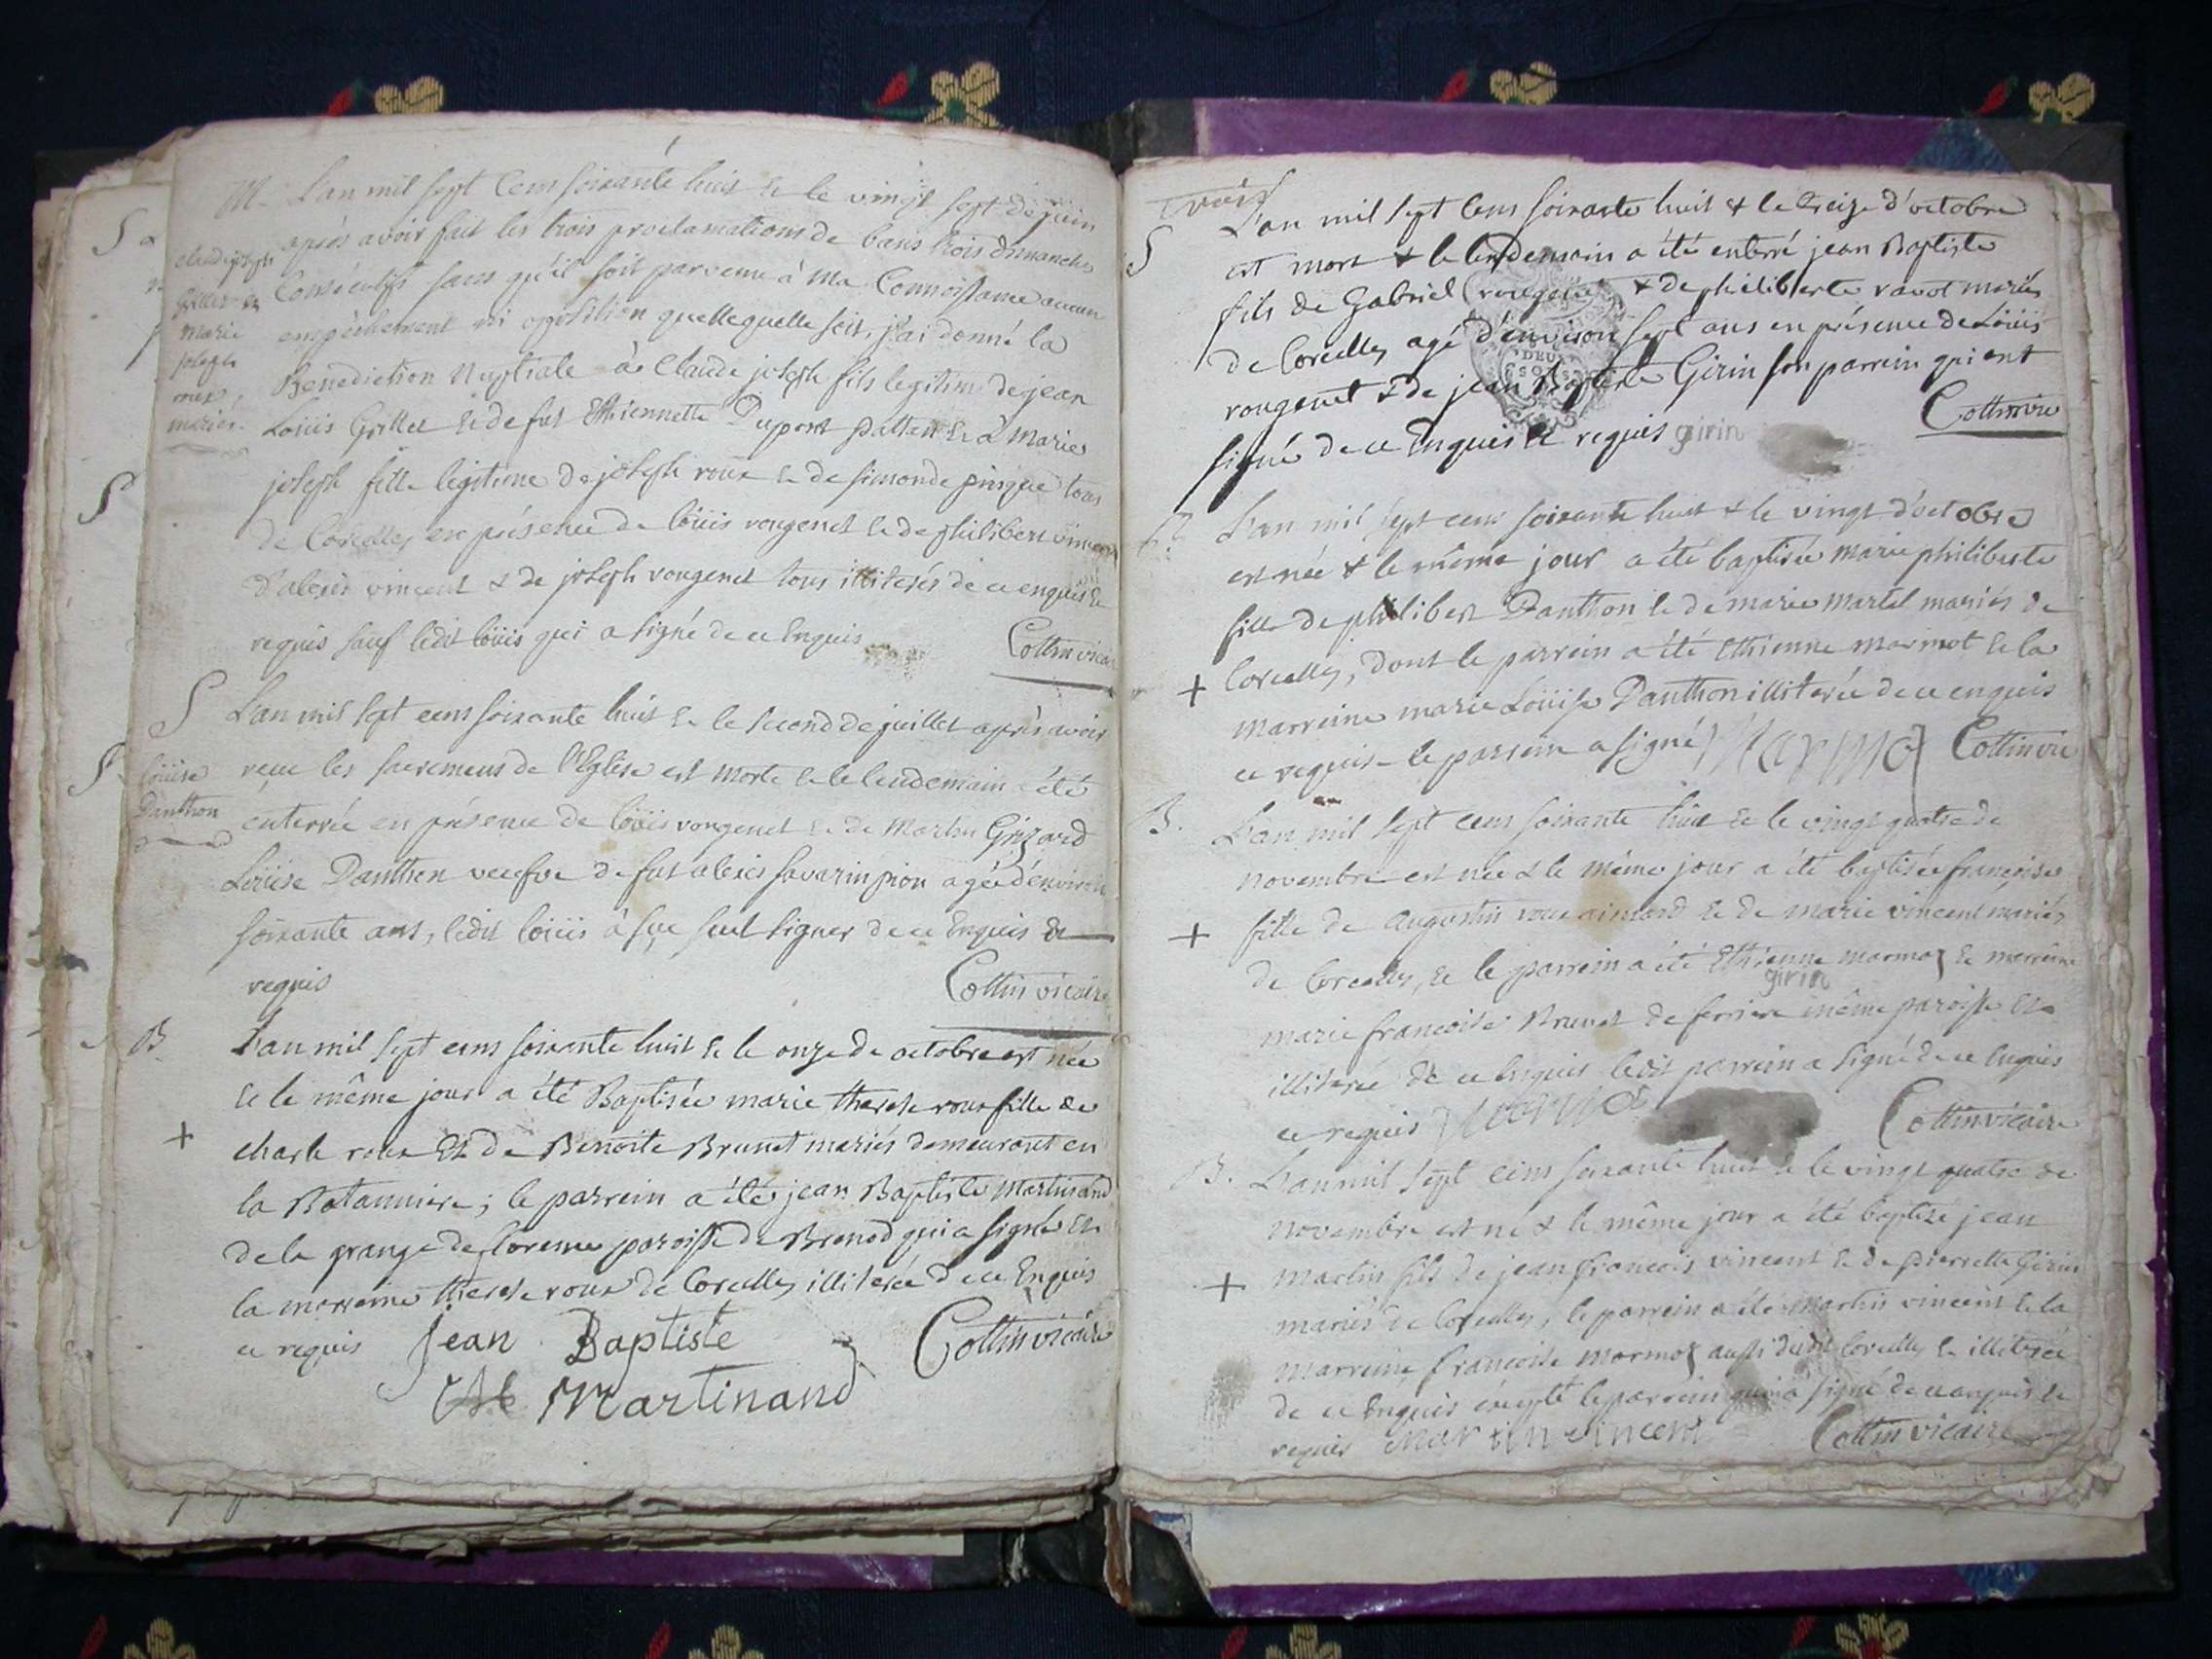 M. L'an mil sept cens soixante huit & le vingt sept de juin
après avoir fait les trois proclamations de bans trois dimanches
consécutifs sans qu'il soit parvenu à ma connoissance aucun
empêchement ni opposition quellequelle soit, j'ai donné la
Benediction Nuptiale à Claude joseph fils legitime de jean
Loüis Grillet & de fut Ethiennette Dupont & à Marie
joseph fille legitime de joseph roux & de simonde pingue tous
de Corcelles en présence de loüis rougenet & de philibert vincent
D'alexis vincent & de joseph rougenet tous illiterés de ce enquis &
requis sauf ledit loüis qui a signé de ce Enquis Cottin vicaire
claude joseph
Grillet &
Marie
joseph
roux,
mariés
S L'an mil sept cens soixante huit & le second de juillet après avoir
reçue les sacremens de l'Eglise est morte & le lendemain a été
enterrée en présence de loüis rougenet & de Martin Grizard
Loüise Danthon veufve de fut alexis savarin pion agée d'environ
soixante ans, ledit loüis à sçu seul signer de ce Enquis &
requis Cottin vicaire
loüise
Danthon
B L'an mil sept cens soixante huit & le onze de octobre est née
& le même jour a été Baptisée marie therese roux fille de
charle roux & de Benoite Brunet mariés demeurant en
+ la Batanniere; le parrein a été jean Baptiste Martinand
de la grange de loreme paroisse de Brenod qui a signé &
la marreine therese roux de Corcelles illiterée de ce Enquis
ce requis Jean Baptiste Cottin vicaire
Martinand
S L'an mil sept cens soixante huit & le treize d'octobre
est mort & le lendemain a été enterré jean Baptiste
fils de Gabriel rougenet & de philiberte ravot mariés
de Corcelles agé d'environ sept ans en présence de Loüis
rougenet & de jean Baptiste Girin son parrein qui ont
signé de ce Enquis & requis girin Cottin vic
L'an mil sept cens soixante huit & le vingt d'octobre
est née & le même jour a été baptisée marie philiberte
fille de philibert Danthon & de marie martel mariés de
+ Corcelles, dont le parrein a été Ethienne marmot & la
marreine marie Loüise Danthon illiterée de ce enquis
ce requis le parrein a signé Marmot Cottin vic
B. L'an mil sept cens soixante huit & le vingt quatre de
novembre est née & le même jour a été baptisée françoise
+ fille de augustin roux aimard & de marie vincent mariés
de Corcelles, & le parrein a été Ethienne marmot & marreine
girin
marie francoise Brunet de ferriere même paroisse &
illiterée de ce Enquis ledit parrein a signé de ce Enquis
ce requis Marmot Cottin vicaire
B. L'an mil sept cens soixante huit & le vingt quatre de
novembre est né & le même jour a été baptisé jean
+ martin fils de jean francois vincent & de pierrette Girin
mariés de Corcelles, le parrein a été Martin vincent & la
marreine francoise marmot aussi dudit Corcelles & illiterée
de ce Enquis excepté le parrein qui a signé de ce enquis &
requis Martin vincent Cottin vicaire